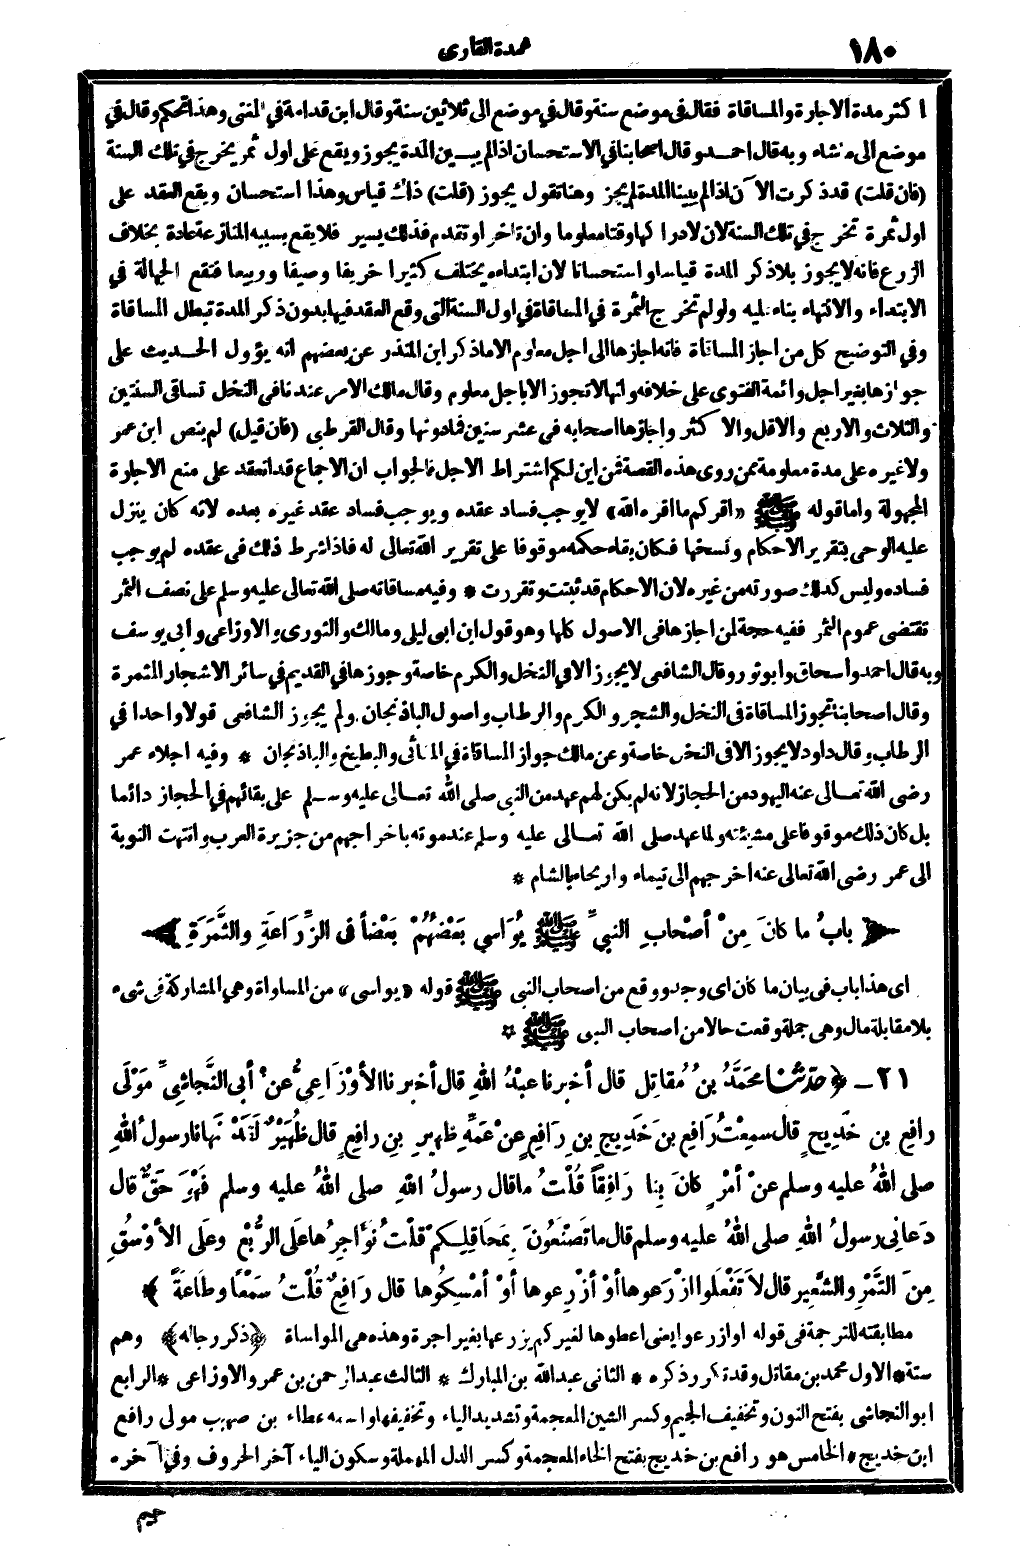 ١٨٠
عمدة القارى
اكثر مدة الاجارة والمساقاة فقال فى موضع سنة وقال فى موضع الى ثلاثين سنة وقال ابن قدامة فى المغنى وهذا تحكم وقال فى
موضع الى ما شاء وبه قال احمد وقال اصحابنا فى الاستحسان اذا لم يبين المدة يجوز ويقع على اول ثمر يخرج فى تلك السنة
(فان قلت) قد ذكرت الآن اذا لم يبينا المدة لم يجز وهنا تقول يجوز (قلت) ذاك قياس وهذا استحسان ويقع العقد على
اول ثمرة تخرج فى تلك السنة لان لادراكها وقتا معلوما وان تاخر او تقدم فذلك يسير فلا يقع بسببه المنازعة عادة بخلاف
الزرع فانه لا يجوز بلا ذكر المدة قياسا واستحسانا لان ابتداءه يختلف كثيرا خريفا وصيفا وربيعا فتقع الجهالة فى
الابتداء والانتهاء بناء عليه ولو لم تخرج الثمرة فى المساقاة فى اول السنة التى وقع العقد فيها بدون ذكر المدة تبطل المساقاة
وفى التوضيح كل من اجاز المساقاة فانه اجازها الى اجل معلوم الا ما ذكر ابن المنذر عن بعضهم انه يؤول الحديث على
جوازها بغير اجل وائمة الفتوى على خلافه وانها لا تجوز الا باجل معلوم وقال مالك الامر عندنا فى النخل تساقى السنتين
والثلاث والاربع والاقل والاكثر واجازها اصحابه فى عشر سنين فما دونها وقال القرطبى (فان قيل) لم ينص ابن عمر
ولا غيره على مدة معلومة ممن روى هذه القصة فمن اين لكم اشتراط الاجل فالجواب ان الاجماع قد انعقد على منع الاجارة
المجهولة واما قوله ﷺ «اقركم ما اقره الله» لا يوجب فساد عقده ويوجب فساد عقد غيره بعده لانه كان ينزل
عليه الوحى بتقرير الاحكام ونسخها فكان بقاء حكمه موقوفا على تقرير الله تعالى له فاذا شرط ذلك فى عقده لم يوجب
فساده وليس كذلك صورته من غيره لان الاحكام قد ثبتت وتقررت * وفيه مساقاته صلى الله تعالى عليه وسلم على نصف الثمر
تقتضى عموم الثمر ففيه حجة لمن اجازها فى الاصول كلها وهو قول ابن ابى ليلى ومالك والثورى والاوزاعى وابى يوسف
وبه قال احمد واسحاق وابو ثور وقال الشافعى لا يجوز الا فى النخل والكرم خاصة وجوزها فى القديم فى سائر الاشجار المثمرة
وقال اصحابنا تجوز المساقاة فى النخل والشجر والكرم والرطاب واصول الباذنجان ولم يجوز الشافعى قولا واحدا فى
الرطاب وقال داود لا يجوز الا فى النخل خاصة وعن مالك جواز المساقاة فى المقاثى والبطيخ والباذنجان * وفيه اجلاء عمر
رضى الله تعالى عنه اليهود من الحجاز لانه لم يكن لهم عهد من النبى صلى الله تعالى عليه وسلم على بقائهم فى الحجاز دائما
بل كان ذلك موقوفا على مشيئته ولما عهد صلى الله تعالى عليه وسلم عند موته باخراجهم من جزيرة العرب وانتهت النوبة
الى عمر رضى الله تعالى عنه اخرجهم الى تيماء واريحاء بالشام *
﴿ بابُ ما كانَ مِنْ أصْحابِ النبيِّ ﷺ يُوَاسي بَعْضُهُمْ بَعْضاً فى الزِّرَاعَةِ والثَّمَرَةِ ﴾
اى هذا باب فى بيان ما كان اى وجد ووقع من اصحاب النبى ﷺ قوله «يواسى» من المساواة وهى المشاركة فى شىء
بلا مقابلة مال وهى جملة وقعت حالا من اصحاب النبى ﷺ *
٢١ - ﴿ حدثنا محمَّدُ بنُ مُقاتِلٍ قال أخبرنا عبْدُ اللهِ قال أخبرنا الأوْزَاعِىُّ عنْ أبى النَّجاشِىِّ مَوْلَى
رافِعِ بنِ خَدِيجٍ قال سمِعْتُ رَافِعَ بنَ خَدِيجِ بنِ رَافِعٍ عنْ عَمِّهِ ظُهيرِ بنِ رافِعٍ قال ظُهَيْرٌ لَقَدْ نَهانا رسولُ اللهِ
صلى اللهُ عليه وسلم عنْ أمْرٍ كانَ بِنا رَافِقاً قُلْتُ ما قال رسولُ اللهِ صلى اللهُ عليه وسلم فَهْوَ حَقٌّ قال
دَعانِى رسولُ اللهِ صلى اللهُ عليه وسلم قال ما تَصْنَعُونَ بِمَحاقِلِكمْ قلْتُ نُوَاجِرُها علَى الرُّبُعِ وعلَى الأوْسُقِ
مِنَ التَّمْرِ والشَّعِيرِ قال لا تَفْعَلوا ازْرَعوها أوْ أزْرِعوها أوْ أمْسِكُوها قال رَافِعٌ قُلْتُ سَمْعًا وطَاعَةً ﴾
مطابقته للترجمة فى قوله او ازرعوا يعنى اعطوها لغيركم يزرعها بغير اجرة وهذه هى المواساة ﴿ذكر رجاله﴾ وهم
ستة * الاول محمد بن مقاتل وقد تكرر ذكره * الثانى عبدالله بن المبارك * الثالث عبدالرحمن بن عمرو الاوزاعى * الرابع
ابو النجاشى بفتح النون وتخفيف الجيم وكسر الشين المعجمة وتشديد الياء وتخفيفها واسمه عطاء بن صهيب مولى رافع
ابن خديج * الخامس هو رافع بن خديج بفتح الخاء المعجمة وكسر الدال المهملة وسكون الياء آخر الحروف وفى آخره
جيم